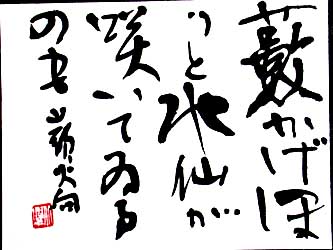 藪かげほ
つと水仙が
咲いてゐる
のも 山頭火句